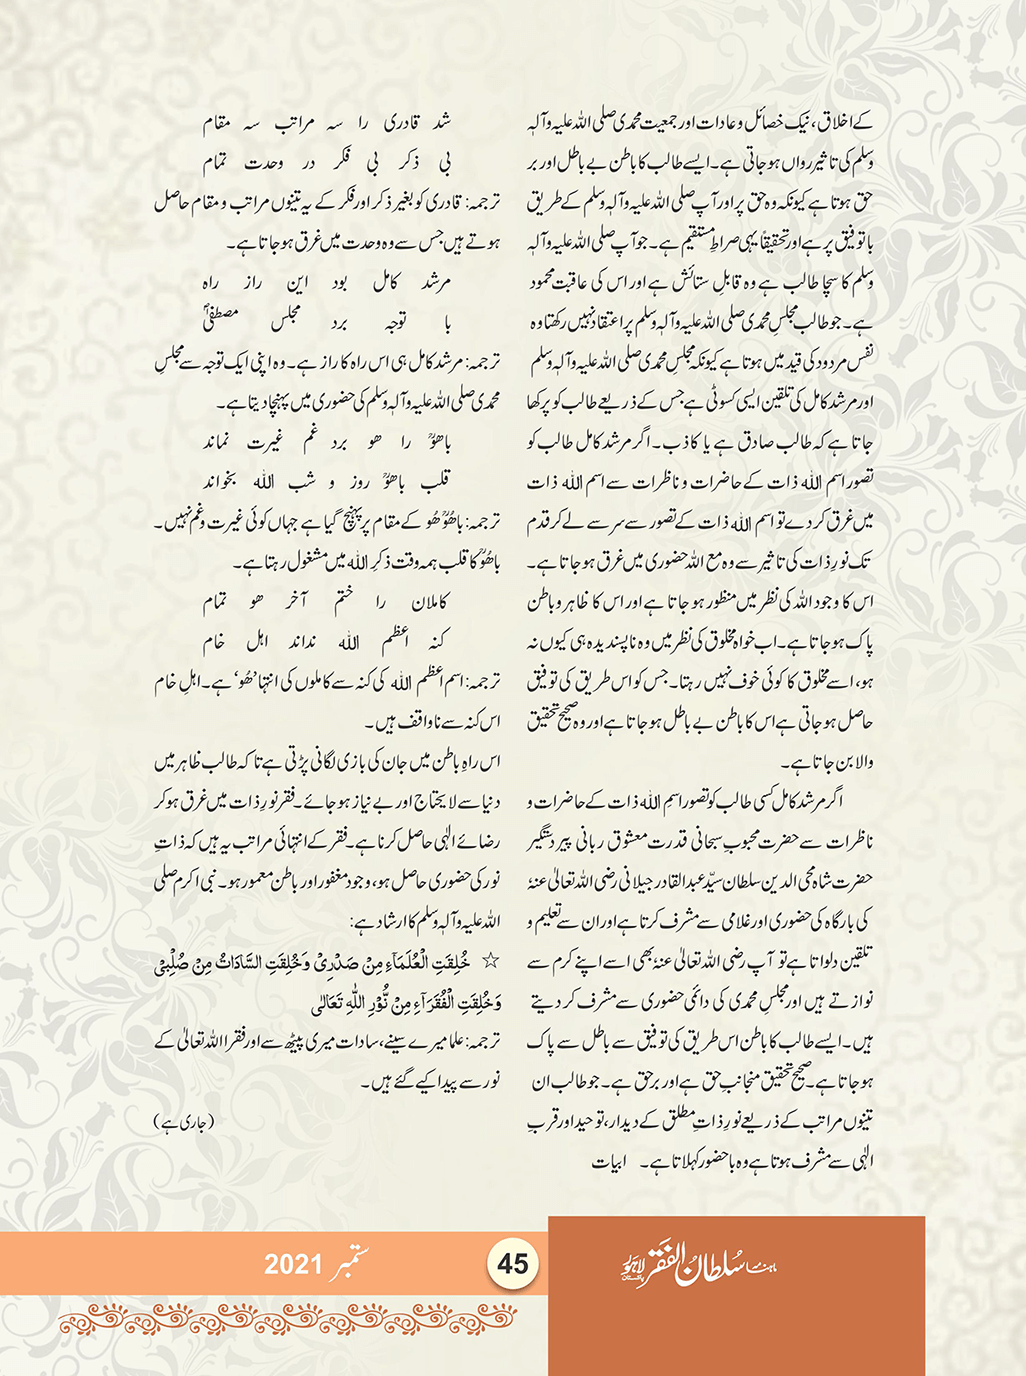 کے اخلاق، نیک خصائل و عادات اور جمعیت محمدی صلی اللہ علیہ وآلہٖ
وسلم کی تاثیر رواں ہو جاتی ہے۔ ایسے طالب کا باطن بے باطل اور بر
حق ہوتا ہے کیونکہ وہ حق پر اور آپ صلی اللہ علیہ وآلہٖ وسلم کے طریق
با توفیق پر ہے اور تحقیقاً یہی صراطِ مستقیم ہے۔ جو آپ صلی اللہ علیہ وآلہٖ
وسلم کا سچا طالب ہے وہ قابلِ ستائش ہے اور اس کی عاقبت محمود
ہے۔ جو طالب مجلسِ محمدی صلی اللہ علیہ وآلہٖ وسلم پر اعتقاد نہیں رکھتا وہ
نفس مردود کی قید میں ہوتا ہے کیونکہ مجلسِ محمدی صلی اللہ علیہ وآلہٖ وسلم
اور مرشد کامل کی تلقین ایسی کسوٹی ہے جس کے ذریعے طالب کو پرکھا
جاتا ہے کہ طالب صادق ہے یا کاذب۔ اگر مرشد کامل طالب کو
تصور اسم اللہ ذات کے حاضرات و ناظرات سے اسم اللہ ذات
میں غرق کر دے تو اسم اللہ ذات کے تصور سے سر سے لے کر قدم
تک نورِ ذات کی تاثیر سے وہ مع اللہ حضوری میں غرق ہو جاتا ہے۔
اس کا وجود اللہ کی نظر میں منظور ہو جاتا ہے اور اس کا ظاہر و باطن
پاک ہو جاتا ہے۔ اب خواہ مخلوق کی نظر میں وہ ناپسندیدہ ہی کیوں نہ
ہو، اسے مخلوق کا کوئی خوف نہیں رہتا۔ جس کو اس طریق کی توفیق
حاصل ہو جاتی ہے اس کا باطن بے باطل ہو جاتا ہے اور وہ صحیح تحقیق
والا بن جاتا ہے۔
اگر مرشد کامل کسی طالب کو تصور اسمِ اللہ ذات کے حاضرات و
ناظرات سے حضرت محبوبِ سبحانی قدرت معشوق ربانی پیر دستگیر
حضرت شاہ محی الدین سلطان سیّد عبدالقادر جیلانی رضی اللہ تعالیٰ عنہٗ
کی بارگاہ کی حضوری اور غلامی سے مشرف کرتا ہے اور ان سے تعلیم و
تلقین دلواتا ہے تو آپ رضی اللہ تعالیٰ عنہٗ بھی اسے اپنے کرم سے
نوازتے ہیں اور مجلسِ محمدی کی دائمی حضوری سے مشرف کر دیتے
ہیں۔ ایسے طالب کا باطن اس طریق کی توفیق سے باطل سے پاک
ہو جاتا ہے۔ صحیح تحقیق منجانبِ حق ہے اور برحق ہے۔ جو طالب ان
تینوں مراتب کے ذریعے نورِ ذاتِ مطلق کے دیدار، توحید اور قربِ
الٰہی سے مشرف ہوتا ہے وہ باحضور کہلاتا ہے۔ ابیات
شد قادری را سہ مراتب سہ مقام
بی ذکر بی فکر در وحدت تمام
ترجمہ: قادری کو بغیر ذکر اور فکر کے یہ تینوں مراتب و مقام حاصل
ہوتے ہیں جس سے وہ وحدت میں غرق ہو جاتا ہے۔
مرشد کامل بود این راز راہ
با توجہ برد مجلس مصطفیؐ
ترجمہ: مرشد کامل ہی اس راہ کا راز ہے۔ وہ اپنی ایک توجہ سے مجلسِ
محمدی صلی اللہ علیہ وآلہٖ وسلم کی حضوری میں پہنچا دیتا ہے۔
باھُوؒ را ھو برد غم غیرت نماند
قلب باھُوؒ روز و شب اللہ بخواند
ترجمہ: باھُوؒ ھُو کے مقام پر پہنچ گیا ہے جہاں کوئی غیرت و غم نہیں۔
باھُوؒ کا قلب ہمہ وقت ذکرِ اللہ میں مشغول رہتا ہے۔
کاملان را ختم آخر ھو تمام
کنہ اعظم اللہ نداند اہل خام
ترجمہ: اسم اعظم اللہ کی کنہ سے کاملوں کی انتہا ’ھُو‘ ہے۔ اہلِ خام
اس کنہ سے ناواقف ہیں۔
اس راہِ باطن میں جان کی بازی لگانی پڑتی ہے تاکہ طالب ظاہر میں
دنیا سے لایحتاج اور بے نیاز ہو جائے۔ فقر نورِ ذات میں غرق ہو کر
رضائے الٰہی حاصل کرنا ہے۔ فقر کے انتہائی مراتب یہ ہیں کہ ذاتِ
نور کی حضوری حاصل ہو، وجود مغفور اور باطن معمور ہو۔ نبی اکرم صلی
اللہ علیہ وآلہٖ وسلم کا ارشاد ہے:
☆ خُلِقَتِ الْعُلَمَآءِ مِنْ صَدْرِیْ وَخُلِقَتِ السَّادَاتُ مِنْ صُلْبِیْ
وَخُلِقَتِ الْفُقَرَآءِ مِنْ نُّوْرِ اللّٰہِ تَعَالٰی
ترجمہ: علما میرے سینے، سادات میری پیٹھ سے اور فقرا اللہ تعالیٰ کے
نور سے پیدا کیے گئے ہیں۔
(جاری ہے)
ماہنامہ سلطان الفقر لاہور پاکستان
45
ستمبر 2021